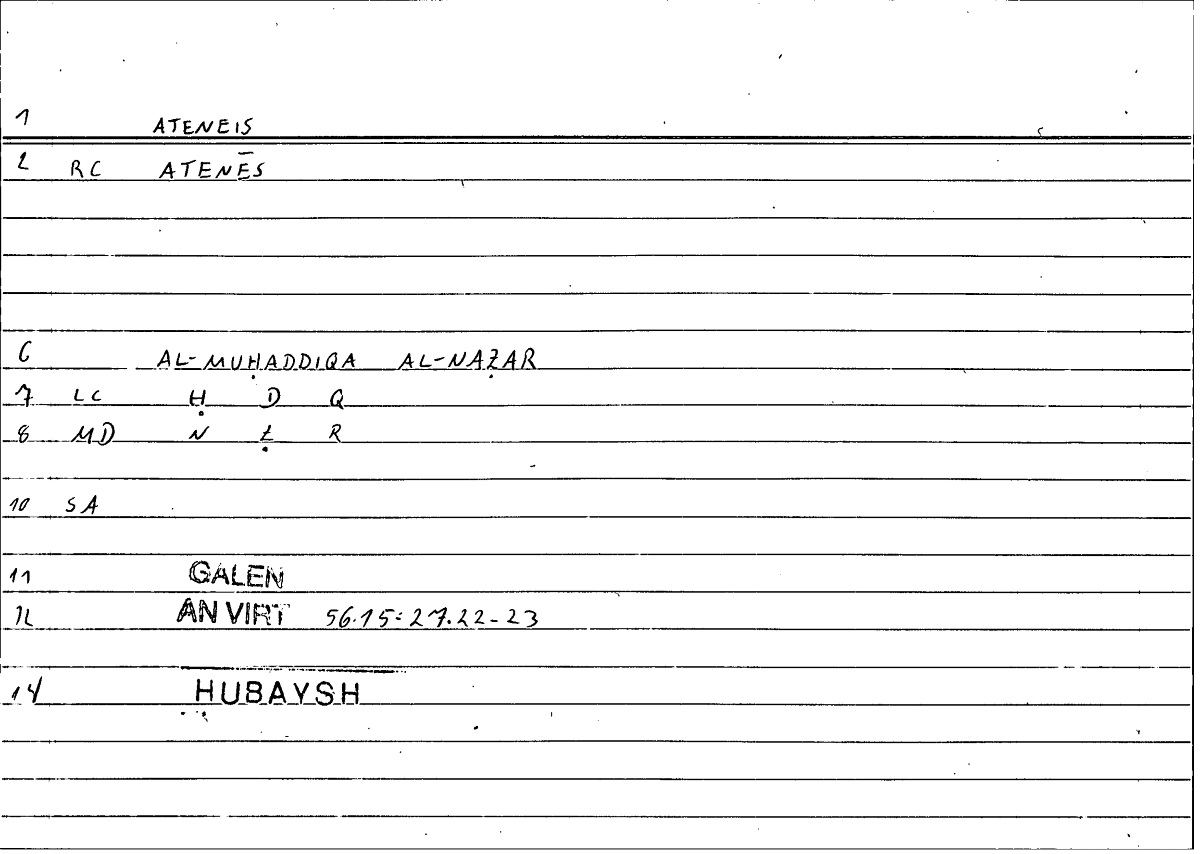 1 ATENEIS
2 RC ATENĒS
6 AL-MUḤADDIQA AL-NAẒAR
7 LC Ḥ D Q
8 MD N Ẓ R
10 SA
11 GALEN
12 AN VIRT 56.15:27.22-23
14 HUBAYSH